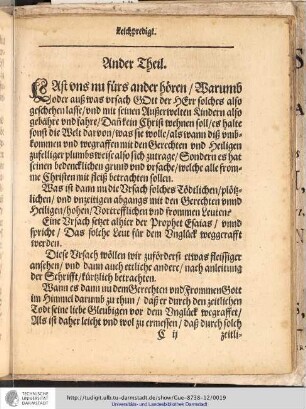 Leichpredigt.
Ander Theil.
LAst vns nu fürs ander hören / Warumb
oder auß was vrsach GOtt der HErr solches also
geschehen lasse / vnd mit seinen Außerwelten Kindern also
gebähre vnd fahre / Dañ kein Christ wehnen soll / es halte
sonst die Welt darvon / was sie wolle / als wann diß vmb-
kommen vnd wegraffen mit den Gerechten vnd Heiligen
zufelliger plumbsweise also sich zutrage / Sondern es hat
seinen bedencklichen grund vnd vrsache / welche alle from-
me Christen mit fleiß betrachten sollen.
Was ist dann nu die Vrsach solches Tödtlichen / plötz-
lichen / vnd vnzeitigen abgangs mit den Gerechten vnnd
Heiligen / hohen / Vortrefflichen vnd frommen Leuten?
Eine Vrsach setzet alhier der Prophet Esaias / vnnd
spricht / Das solche Leut für dem Vnglück weggerafft
werden.
Diese Vrsach wöllen wir zuförderst etwas fleissiger
ansehen / vnd dann auch etliche andere / nach anleitung
der Schrifft / kürtzlich betrachten.
Wann es dann nu dem Gerechten vnd Frommen Gott
im Himmel darumb zu thun / daß er durch den zeitlichen
Todt seine liebe Gleubigen vor dem Vnglück wegraffet /
Als ist daher leicht vnd wol zu ermessen / daß durch solch
C ij
zeitli-
TECHNISCHE
UNIVERSITÄT
DARMSTADT
http://tudigit.ulb.tu-darmstadt.de/show/Gue-8738-12/0019
Universitäts- und Landesbibliothek Darmstadt